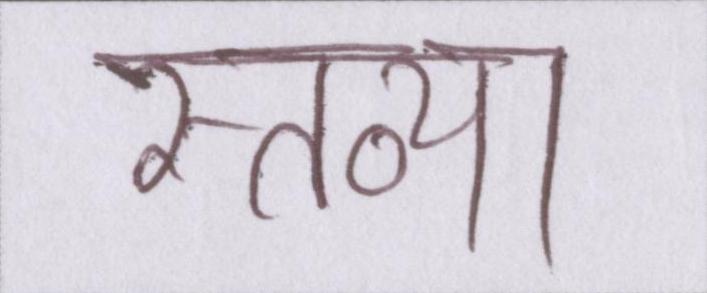 स्तव्या